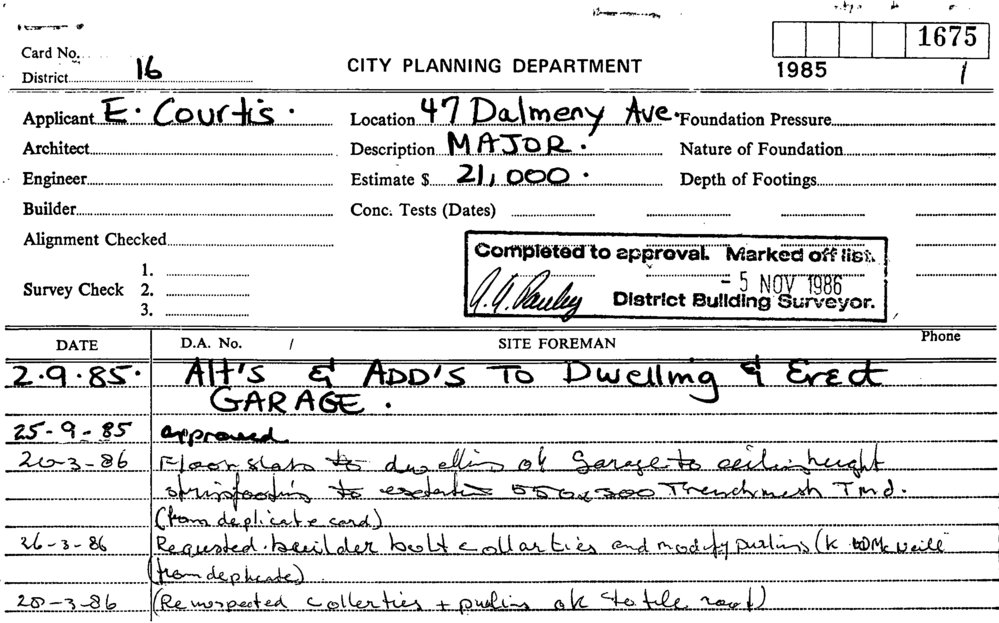 1675
Card No.
District 16
CITY PLANNING DEPARTMENT
1985 1
Applicant E. Courtis.
Location 47 Dalmeny Ave.
Foundation Pressure
Architect
Description MAJOR.
Nature of Foundation
Engineer
Estimate $ 21,000.
Depth of Footings
Builder
Conc. Tests (Dates)
Alignment Checked
Survey Check
1.
2.
3.
Completed to approval. Marked off list.
- 5 NOV 1986
District Building Surveyor.
DATE D.A. No. / SITE FOREMAN Phone
2.9.85. Alt's & ADD'S TO Dwelling & Erect
GARAGE.
25-9-85 approved
20-3-86 Floor slab to dwelling ok Garage to ceiling height
to 550x300 Trenchmesh
(from deplicate card)
26-3-86 Requsted builder bolt collarties and modify purlins (K McNeill
(from deplicate)
(Reinspected collerties + purlins ok to tile roof)